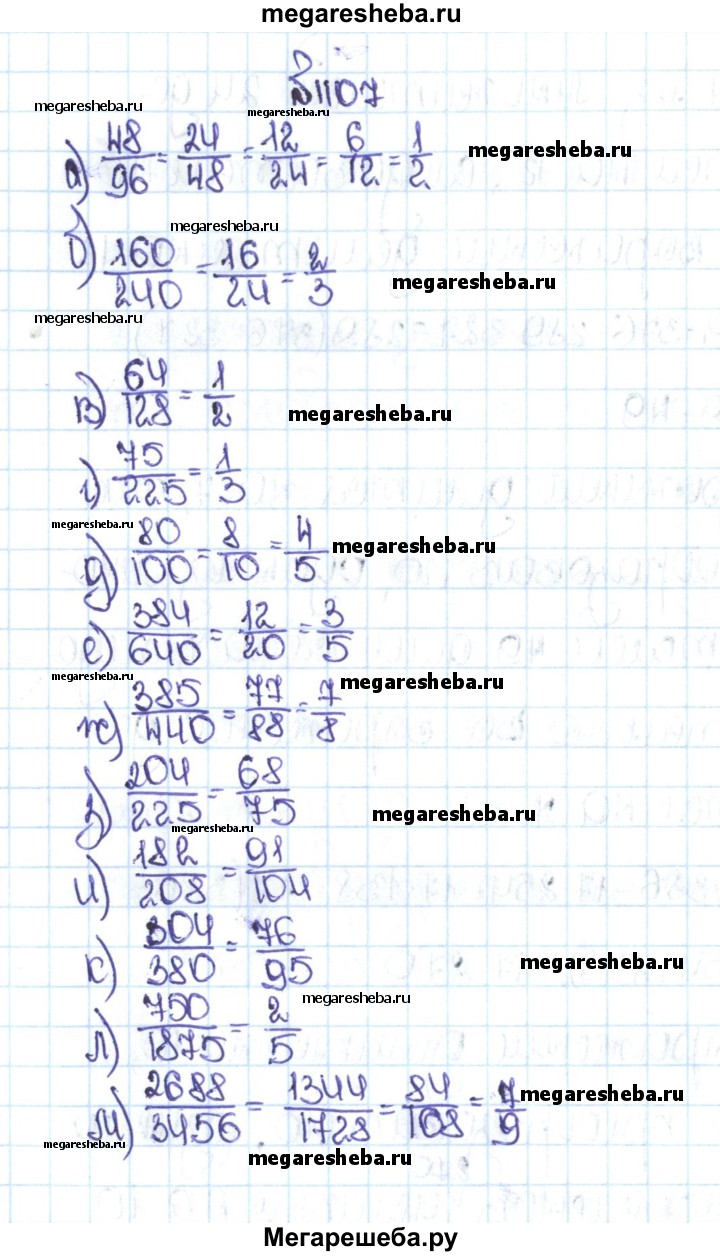 megaresheba.ru
№1107
megaresheba.ru megaresheba.ru
а) 48/96 = 24/48 = 12/24 = 6/12 = 1/2 megaresheba.ru
megaresheba.ru
б) 160/240 = 16/24 = 2/3 megaresheba.ru
megaresheba.ru
в) 64/128 = 1/2 megaresheba.ru
г) 75/225 = 1/3
megaresheba.ru
д) 80/100 = 8/10 = 4/5 megaresheba.ru
е) 384/640 = 12/20 = 3/5
megaresheba.ru megaresheba.ru
ж) 385/440 = 77/88 = 7/8
з) 204/225 = 68/75 megaresheba.ru
megaresheba.ru
и) 182/208 = 91/104
к) 304/380 = 76/95 megaresheba.ru
megaresheba.ru
л) 750/1875 = 2/5
м) 2688/3456 = 1344/1728 = 84/108 = 7/9 megaresheba.ru
megaresheba.ru
megaresheba.ru
Мегарешеба.ру